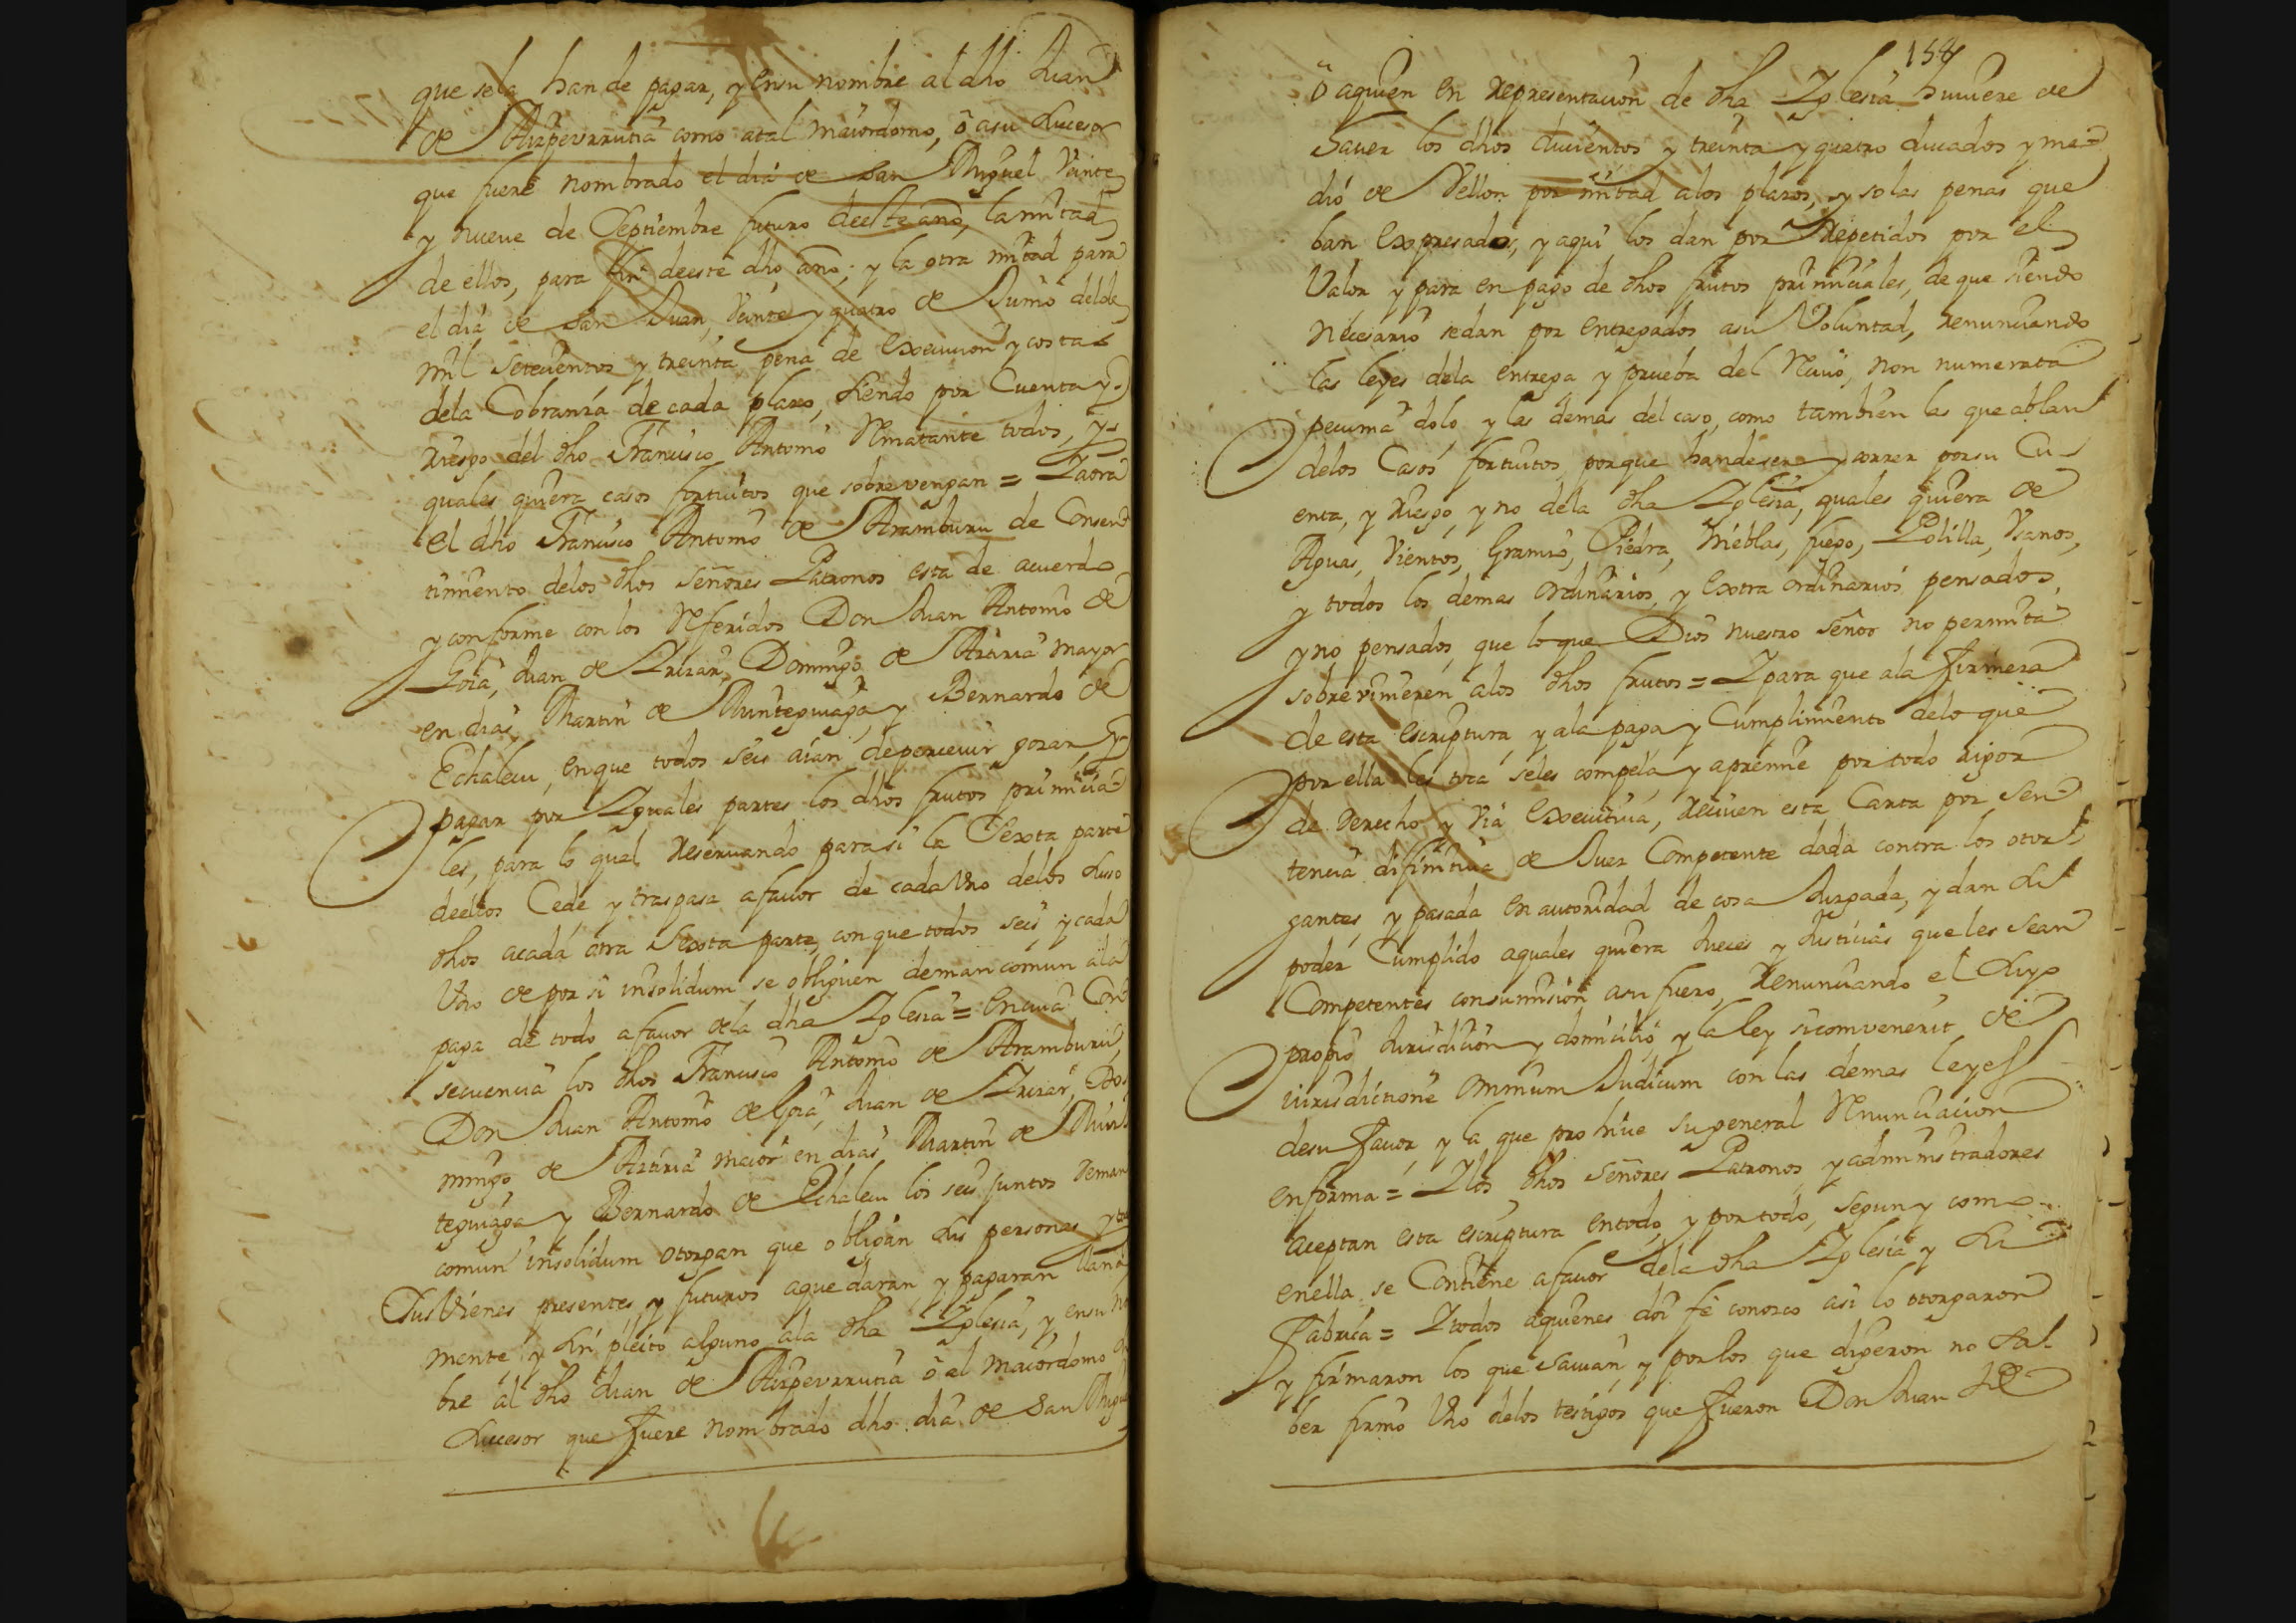 que sela han de pagar, y ensu nombre al dho Juan
de Aizpeurrutia como atal maiordomo, ô asu Sucesor
que fuere nombrado el dia de San Miguel Veinte
y nueve de Septiembre futuro deeste año, la mitad
de ellos, para fin deeste dho año; y la otra mitad para
el dia de San Juan, Veinte y quatro de Junio delde
mil setecientos y treinta pena de execucion y costas
dela Cobranza de cada plazo, siendo por Cuenta y
riesgo del dho Francisco Antonio Rmatante todos, y
quales quiera casos fortuitos que sobrevengan = Iaora
el dho Francisco Antonio de Aramburu de Consen
timiento delos dhos señores Patronos esta de acuerdo
y conforme con los Rferidos Don Juan Antonio de
Goia, Juan de Irizar, Domingo de Aztiria mayor
en dias, Martin de Munteguiaga, y Bernardo de
Echalecu, enque todos seis aian depercevir gozar, y
pagar por Iguales partes los dhos frutos primicia
les, para lo qual reservando parasi la Sexta parte
deellos Cede y traspasa afavor de cadaVno delos suso
dhos acada otra Sexta parte, con que todos seis y cada
Vno de por si insolidum se obliguen demancomun ala
paga de todo afavor dela dha Iglesia = Encuia Con
secuencia los dhos Francisco Antonio de Aramburu,
Don Juan Antonio deGoia, Juan de Irizar, Do
mingo de Aztiria maior en dias, Martin de Mun
teguiaga y Bernardo de Echalecu los seis juntos deman
comun insolidum otorgan que obligan sus personas y
sus Vienes presentes y futuros aque daran y pagaran llana
mente y sin pleito alguno ala dha Iglesia, y ensu
bre al dho Juan de Aizpeurrutia ô al maiordomo
Sucesor que fuere nombrado dho dia de San Migu
158
ô aquien en representacion de dha Iglesia huviere de
haver los dhos ducientos y treinta y quatro ducados y me
dio de Vellon por mitad alos plazos, y solas penas que
ban expresados, y aqui los dan por Repetidos por el
Valor y para en pago de dhos frutos primiciales, de que siendo
necesario sedan por entregados asu Voluntad, renunciando
las leyes dela entrega y prueba del Recivo, non numerata
pecunia dolo, y las demas del caso, como tambien las que ablan
delos Casos fortuitos, porque handeser y correr porsu Cu
enta, y riesgo, y no dela dha Iglesia, quales quiera de
Aguas, Vientos, Granizo, Piedra, Nieblas, fuego, Polilla, Vsanos,
y todos los demas ordinarios, y extra ordinarios pensados,
y no pensados, que lo que Dios nuestro señor no permita
sobrevinieren alos dhos frutos = I para que ala firmeza
de esta escriptura, y ala paga y Cumplimiento delo que
por ella les toca seles compela, y apremie por todo rigor
de derecho y Via executiva, reciven esta Carta por Sen
tencia difinitiva de Juez Competente dada contra los otor
gantes, y pasada en autoridad de cosa Juzgada, y dan su
poder Cumplido aquales quiera Jueces y Justicias queles sean
Competentes consumision asu fuero, renunciando el suyo
propio Jurisdicion y domicilio, y la ley sicomvenerit de
iurisdictione omnium Judicum con las demas leyes
desu favor, y la que prohive su general Rnunciacion
enforma = I los dhos señores Patronos, y administradores
aceptan esta escriptura entodo, y portodo, segun y como
enella se Contiene afavor dela dha Iglesia y su
Fabrica = I todos aquienes doi fe conozco asi lo otorgaron
y firmaron los que Savian, y porlos que digeron no Sa
ber firmo Vno delos testigos que fueron Don Juan